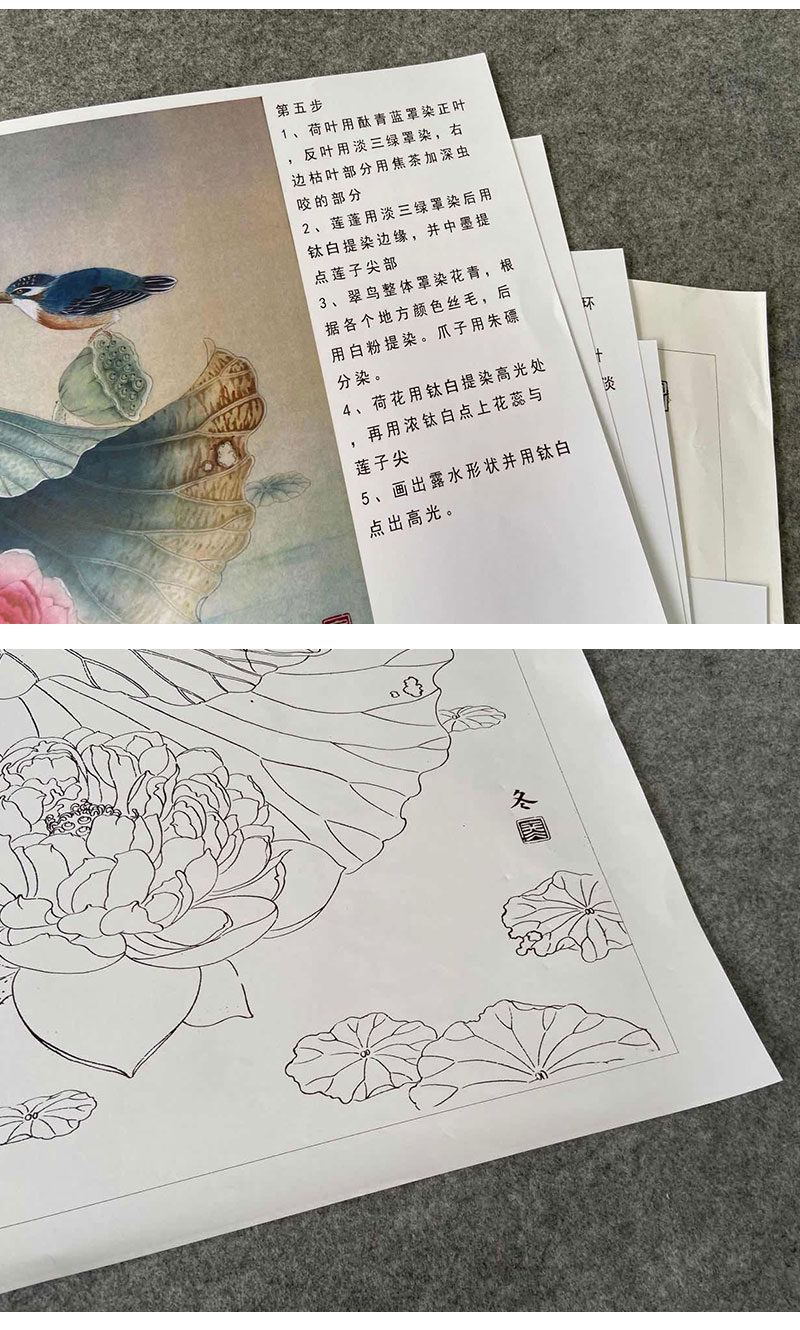 第五步
1、荷叶用酞青蓝罩染正叶
，反叶用淡三绿罩染，右
边枯叶部分用焦茶加深虫
咬的部分
2、莲蓬用淡三绿罩染后用
钛白提染边缘，并中墨提
点莲子尖部
3、翠鸟整体罩染花青，根
据各个地方颜色丝毛，后
用白粉提染。爪子用朱磦
分染。
4、荷花用钛白提染高光处
，再用浓钛白点上花蕊与
莲子尖
5、画出露水形状并用钛白
点出高光。
环
叶
淡
冬